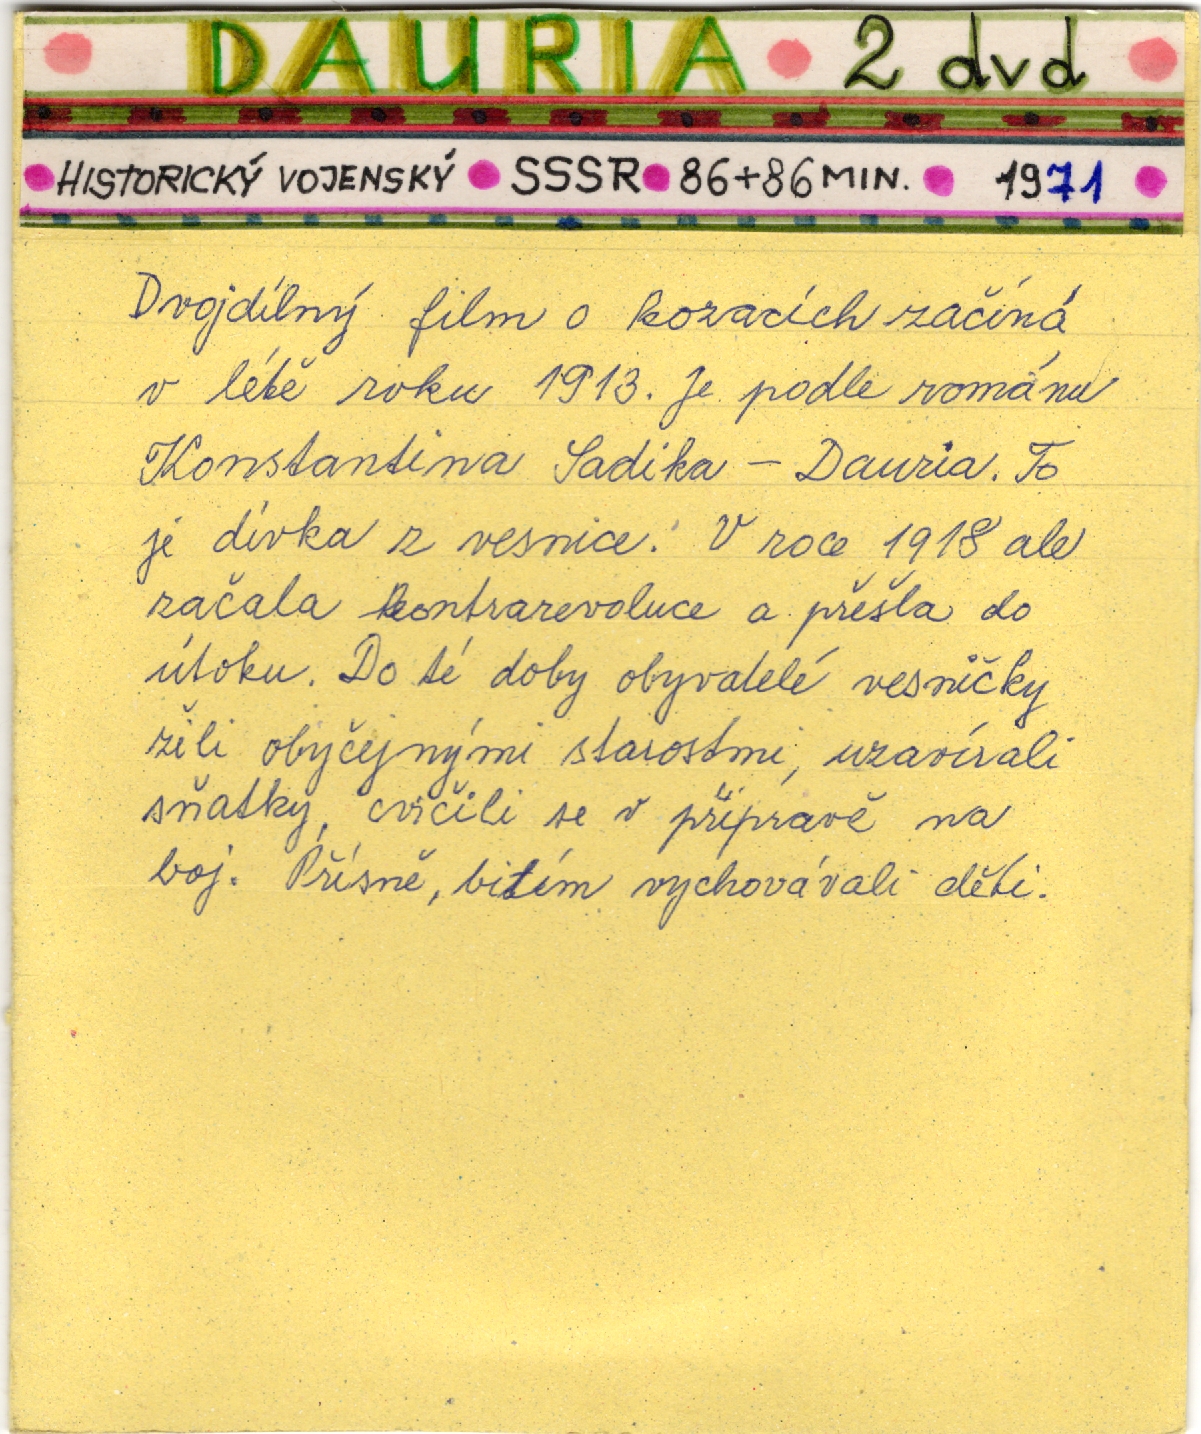 DAURIA 2 dvd
HISTORICKÝ VOJENSKÝ SSSR 86+86 MIN. 1971
Dvojdílný film o kozacích začíná
v létě roku 1913. Je podle románu
Konstantina Sadika – Dauria. To
je dívka z vesnice. V roce 1918 ale
začala kontrarevoluce a přešla do
útoku. Do té doby obyvatelé vesničky
žili obyčejnými starostmi, uzavírali
sňatky, cvičili se v přípravě na
boj. Přísně, bitím vychovávali děti.